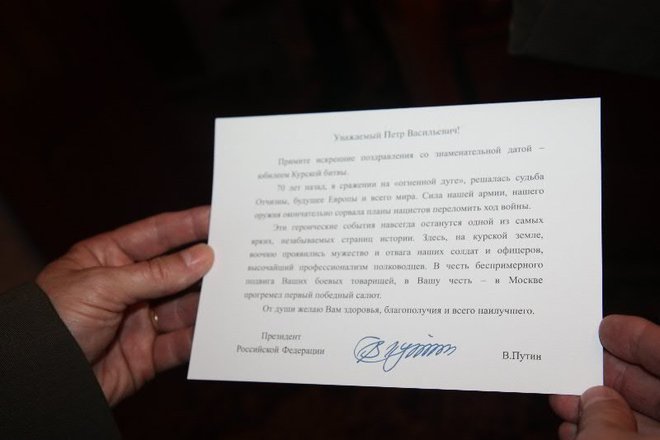 Уважаемый Петр Васильевич!
Примите искренние поздравления со знаменательной датой –
юбилеем Курской битвы.
70 лет назад, в сражении на «огненной дуге», решалась судьба
Отчизны, будущее Европы и всего мира. Сила нашей армии, нашего
оружия окончательно сорвала планы нацистов переломить ход войны.
Эти героические события навсегда останутся одной из самых
ярких, незабываемых страниц истории. Здесь, на курской земле,
воочию проявились мужество и отвага наших солдат и офицеров,
высочайший профессионализм полководцев. В честь беспримерного
подвига Ваших боевых товарищей, в Вашу честь – в Москве
прогремел первый победный салют.
От души желаю Вам здоровья, благополучия и всего наилучшего.
Президент
Российской Федерации
В.Путин